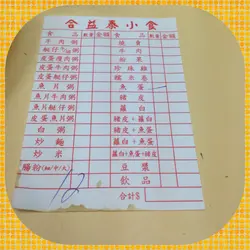 合益泰小食
食品 數量 金額 食品 數量 金額
牛肉粥 燒賣
艇仔粥 牛肉
皮蛋瘦肉粥 粉果
皮蛋艇仔粥 珍珠雞
皮蛋牛肉粥 糯米卷
魚片粥 魚蛋
魚片牛肉粥 豬皮
魚片艇仔粥 蘿白
皮蛋魚片粥 豬皮+魚蛋
白粥 蘿白+魚蛋
炒麵 蘿白+豬皮
炒米 蘿白+魚蛋+豬皮
腸粉(細/中/大) 豆漿
12 飲品
合計$